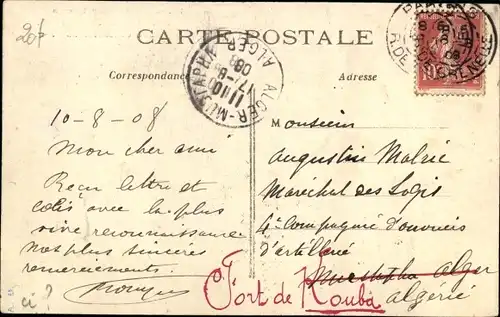 20f
CARTE POSTALE
Correspondance
Adresse
ALGER-MUSTAPHA
ALGER
11 10
17-8
08
10-8-08
Mon cher ami
Reçu lettre et
colis avec la plus
vive reconnaissance
Nos plus sincères
remerciements.
ci ?
Monsieur
Augustin
Maréchal des Logis
4e Compagnie d'ouvriers
d'artillerie
Mustapha Alger
Fort de Kouba
Algérie
10